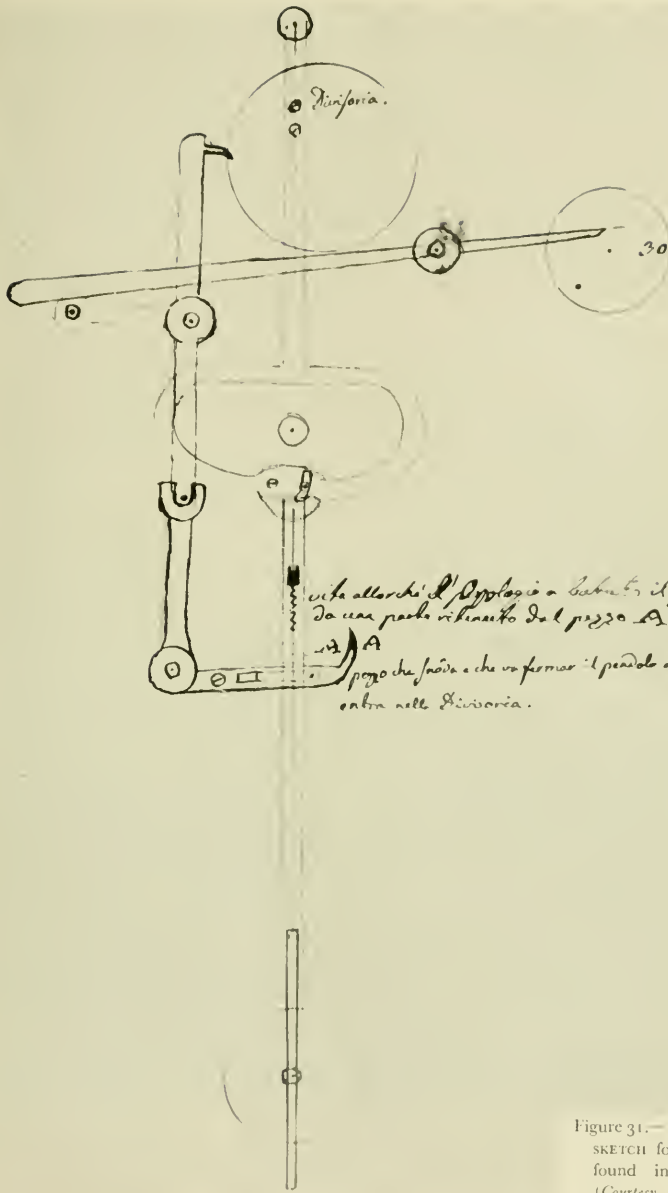 Divisoria.
30
vite allorché l'Orologio a il
da una parte ritenuto dal pezzo A
A A
pezzo che snoda e che va fermar il pendolo
entra nella Divisoria.
Figure 31.—
SKETCH fo
found in
(Courtesy